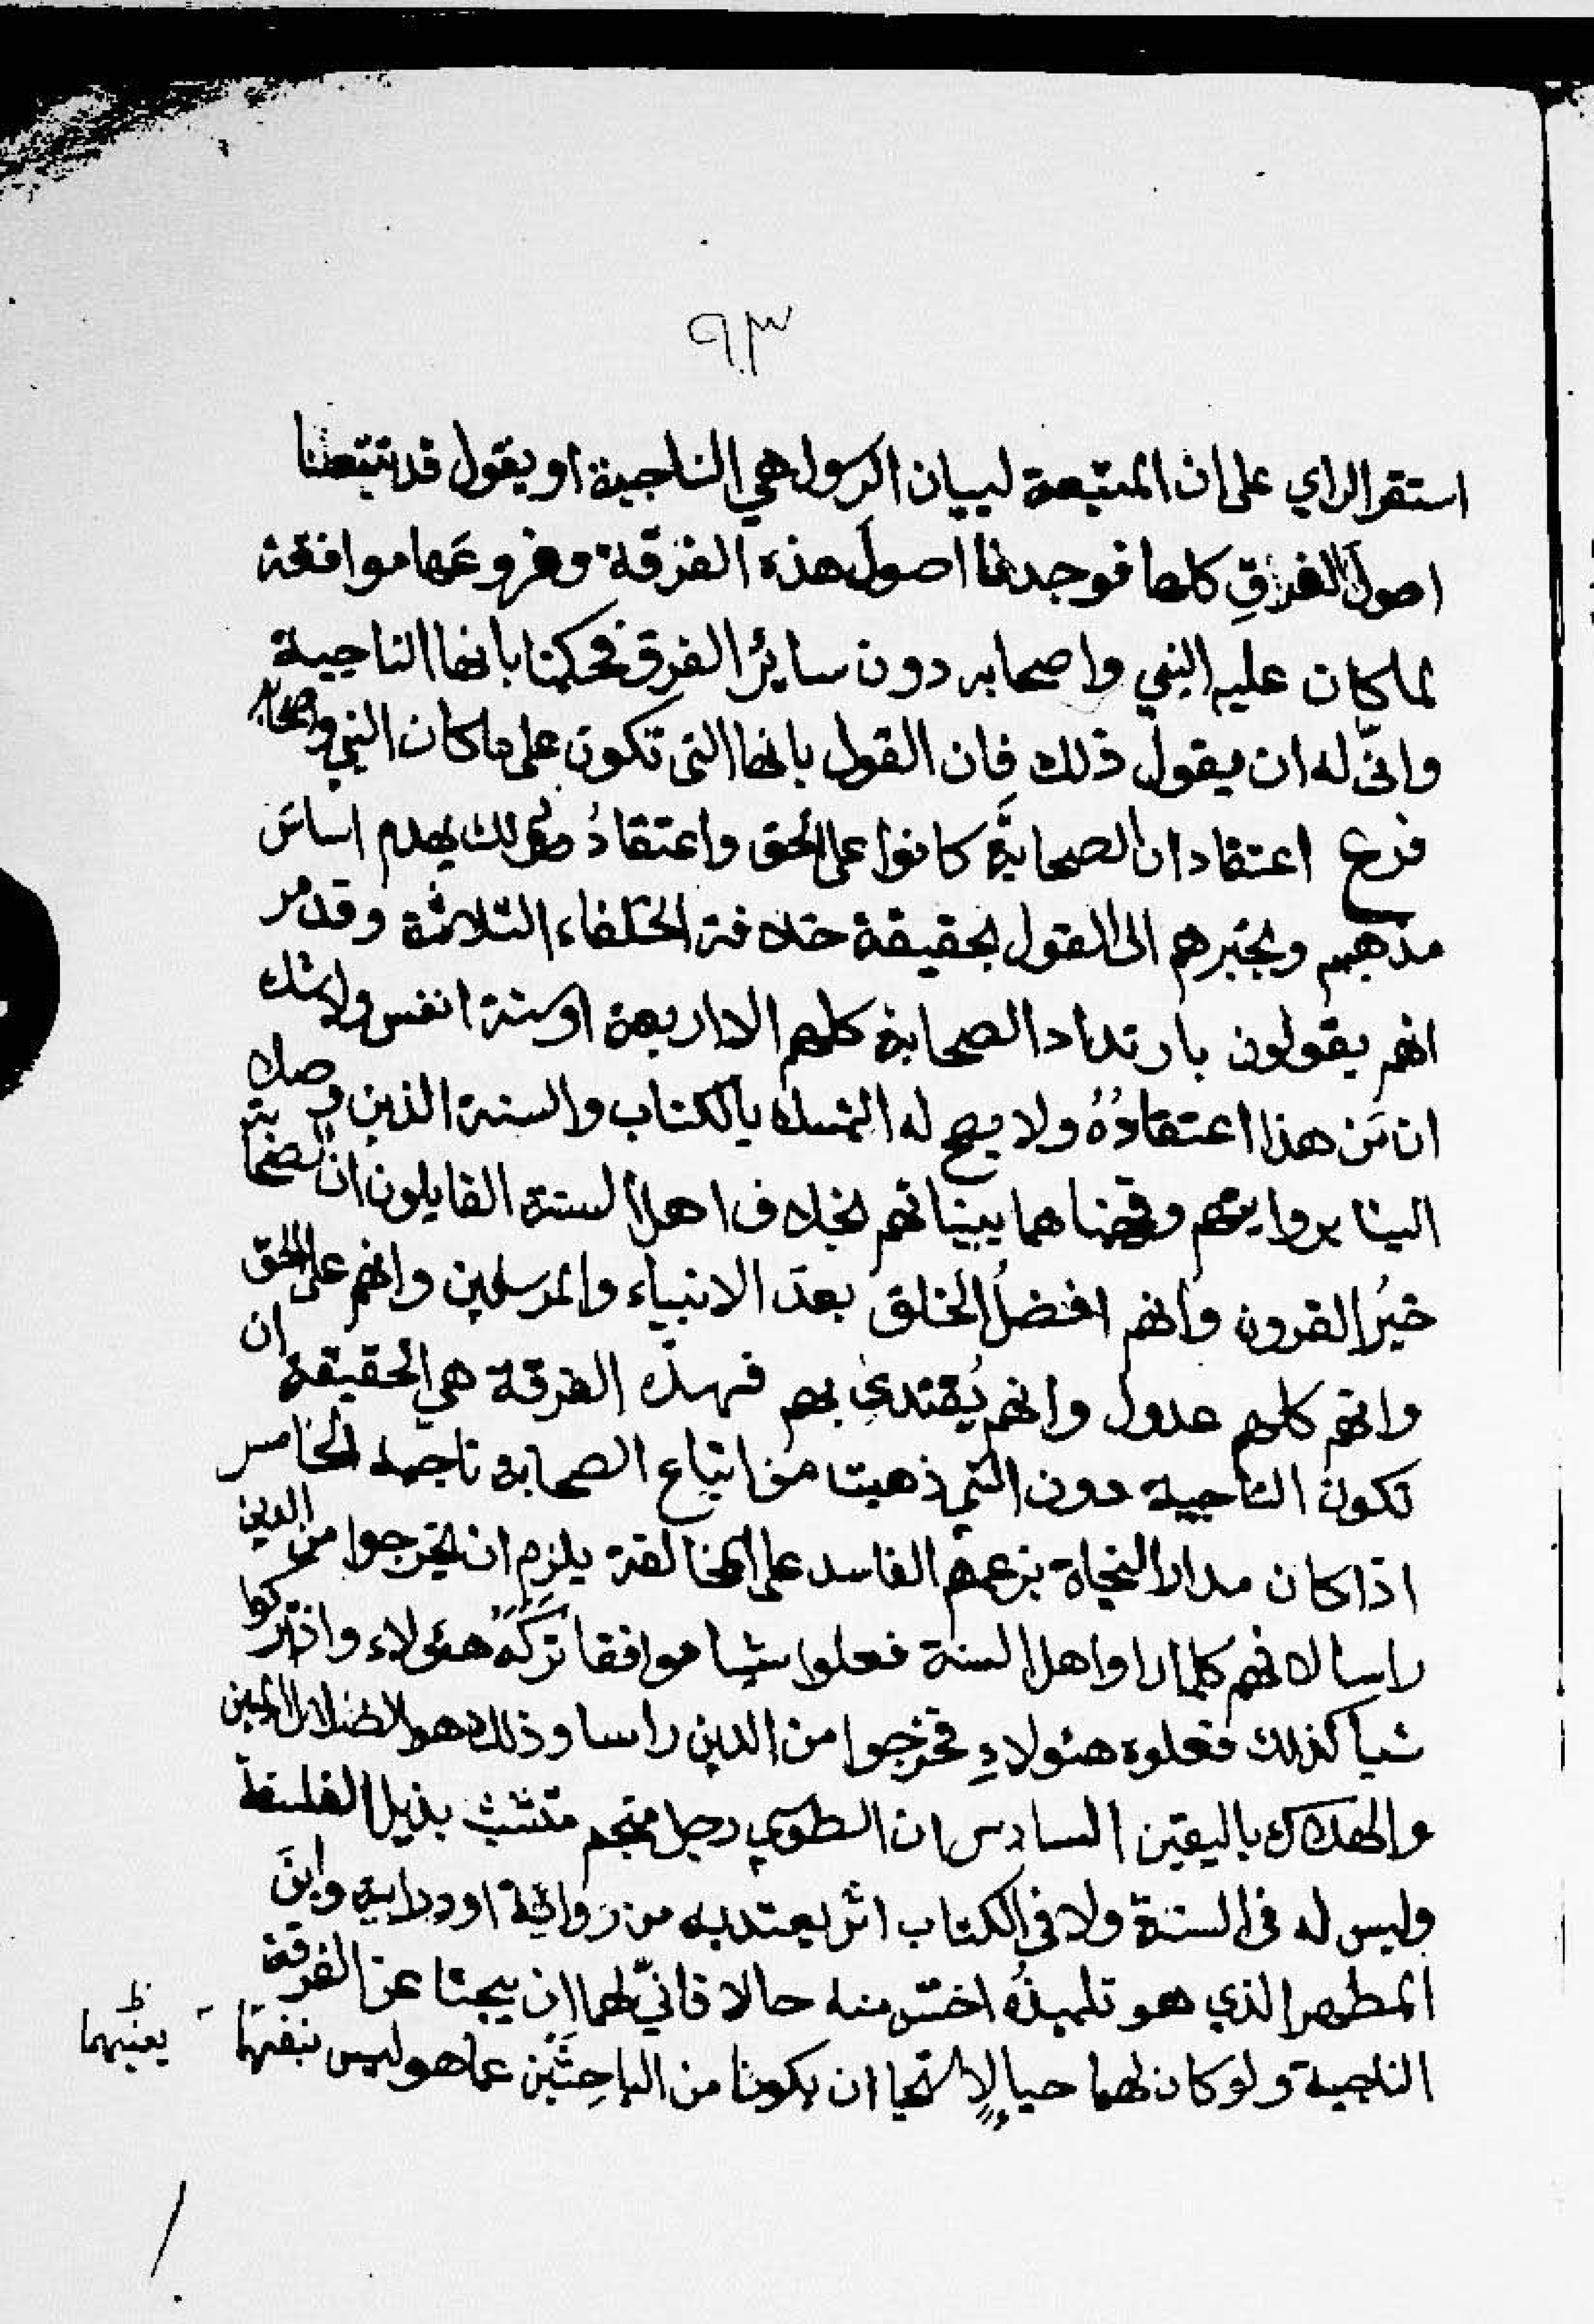 ٩٣
استقر الراي على ان المتبعة لبيان الرسول هي الناجية او يقول قد تتبعنا
اصولَ الفرقِ كلها فوجدنا اصولَ هذه الفرقة وفروعَها موافقة
لما كان عليه النبي واصحابه دون سايرُ الفرق فحكمنا بانها الناجية
وانّى له ان يقول ذلك فان القول بانها التى تكون على ما كان النبي واصحابه
فرع اعتقاد ان الصحابةَ كانوا على الحق واعتقادُ ذلك يهدم اساسَ
مذهبهم ويجبرهم الى القول بحقيقة خلافة الخلفاء الثلاثة وقد مر
انهم يقولون بارتداد الصحابة كلهم الا اربعة او ستة انفس ولا شك
ان مَن هذا اعتقادُهُ ولا يصح له التمسك بالكتاب والسنة الذين وصلا
الينا بروايتهم بخلاف اهل السنة القايلون ان الصحابة
خيرُ القرون وانهم افضلُ الخلق بعدَ الانبياء والمرسلين وانهم على الحق
وانهم كلهم عدول وانهم يُقتدى بهم فهذه الفرقة هي الحقيقة ان
تكون الناجية دون التي ذهبت من اتباع الصحابة ناجية الخامس
اذا كان مدار النجاة بزعمهم الفاسد على المخالفة يلزم ان يخرجوا من الدين
راسا لانهم كلما راوا اهل السنة فعلوا شيا موافقا تركَهُ هئولاء واذا تركوا
شيا كذلك فعلوه هئولاءِ فخرجوا من الدين راسا وذلك هو الضلال المبين
والهلاك باليقين السادس ان الطوسي رجل منجم متشبث بذيل الفلسفة
وليس له فى السنة ولا فى الكتاب اثر يعتد به من رواية او دراية وابنَ
المطهر الذي هو تلميذُه اخسّ منه حالا فانّى لهما ان يبحثا عن الفرقة
الناجية ولو كان لهما حيا لاستحيا ان يكونا من الباحِثَيْن عما هو ليس
يعنيهما